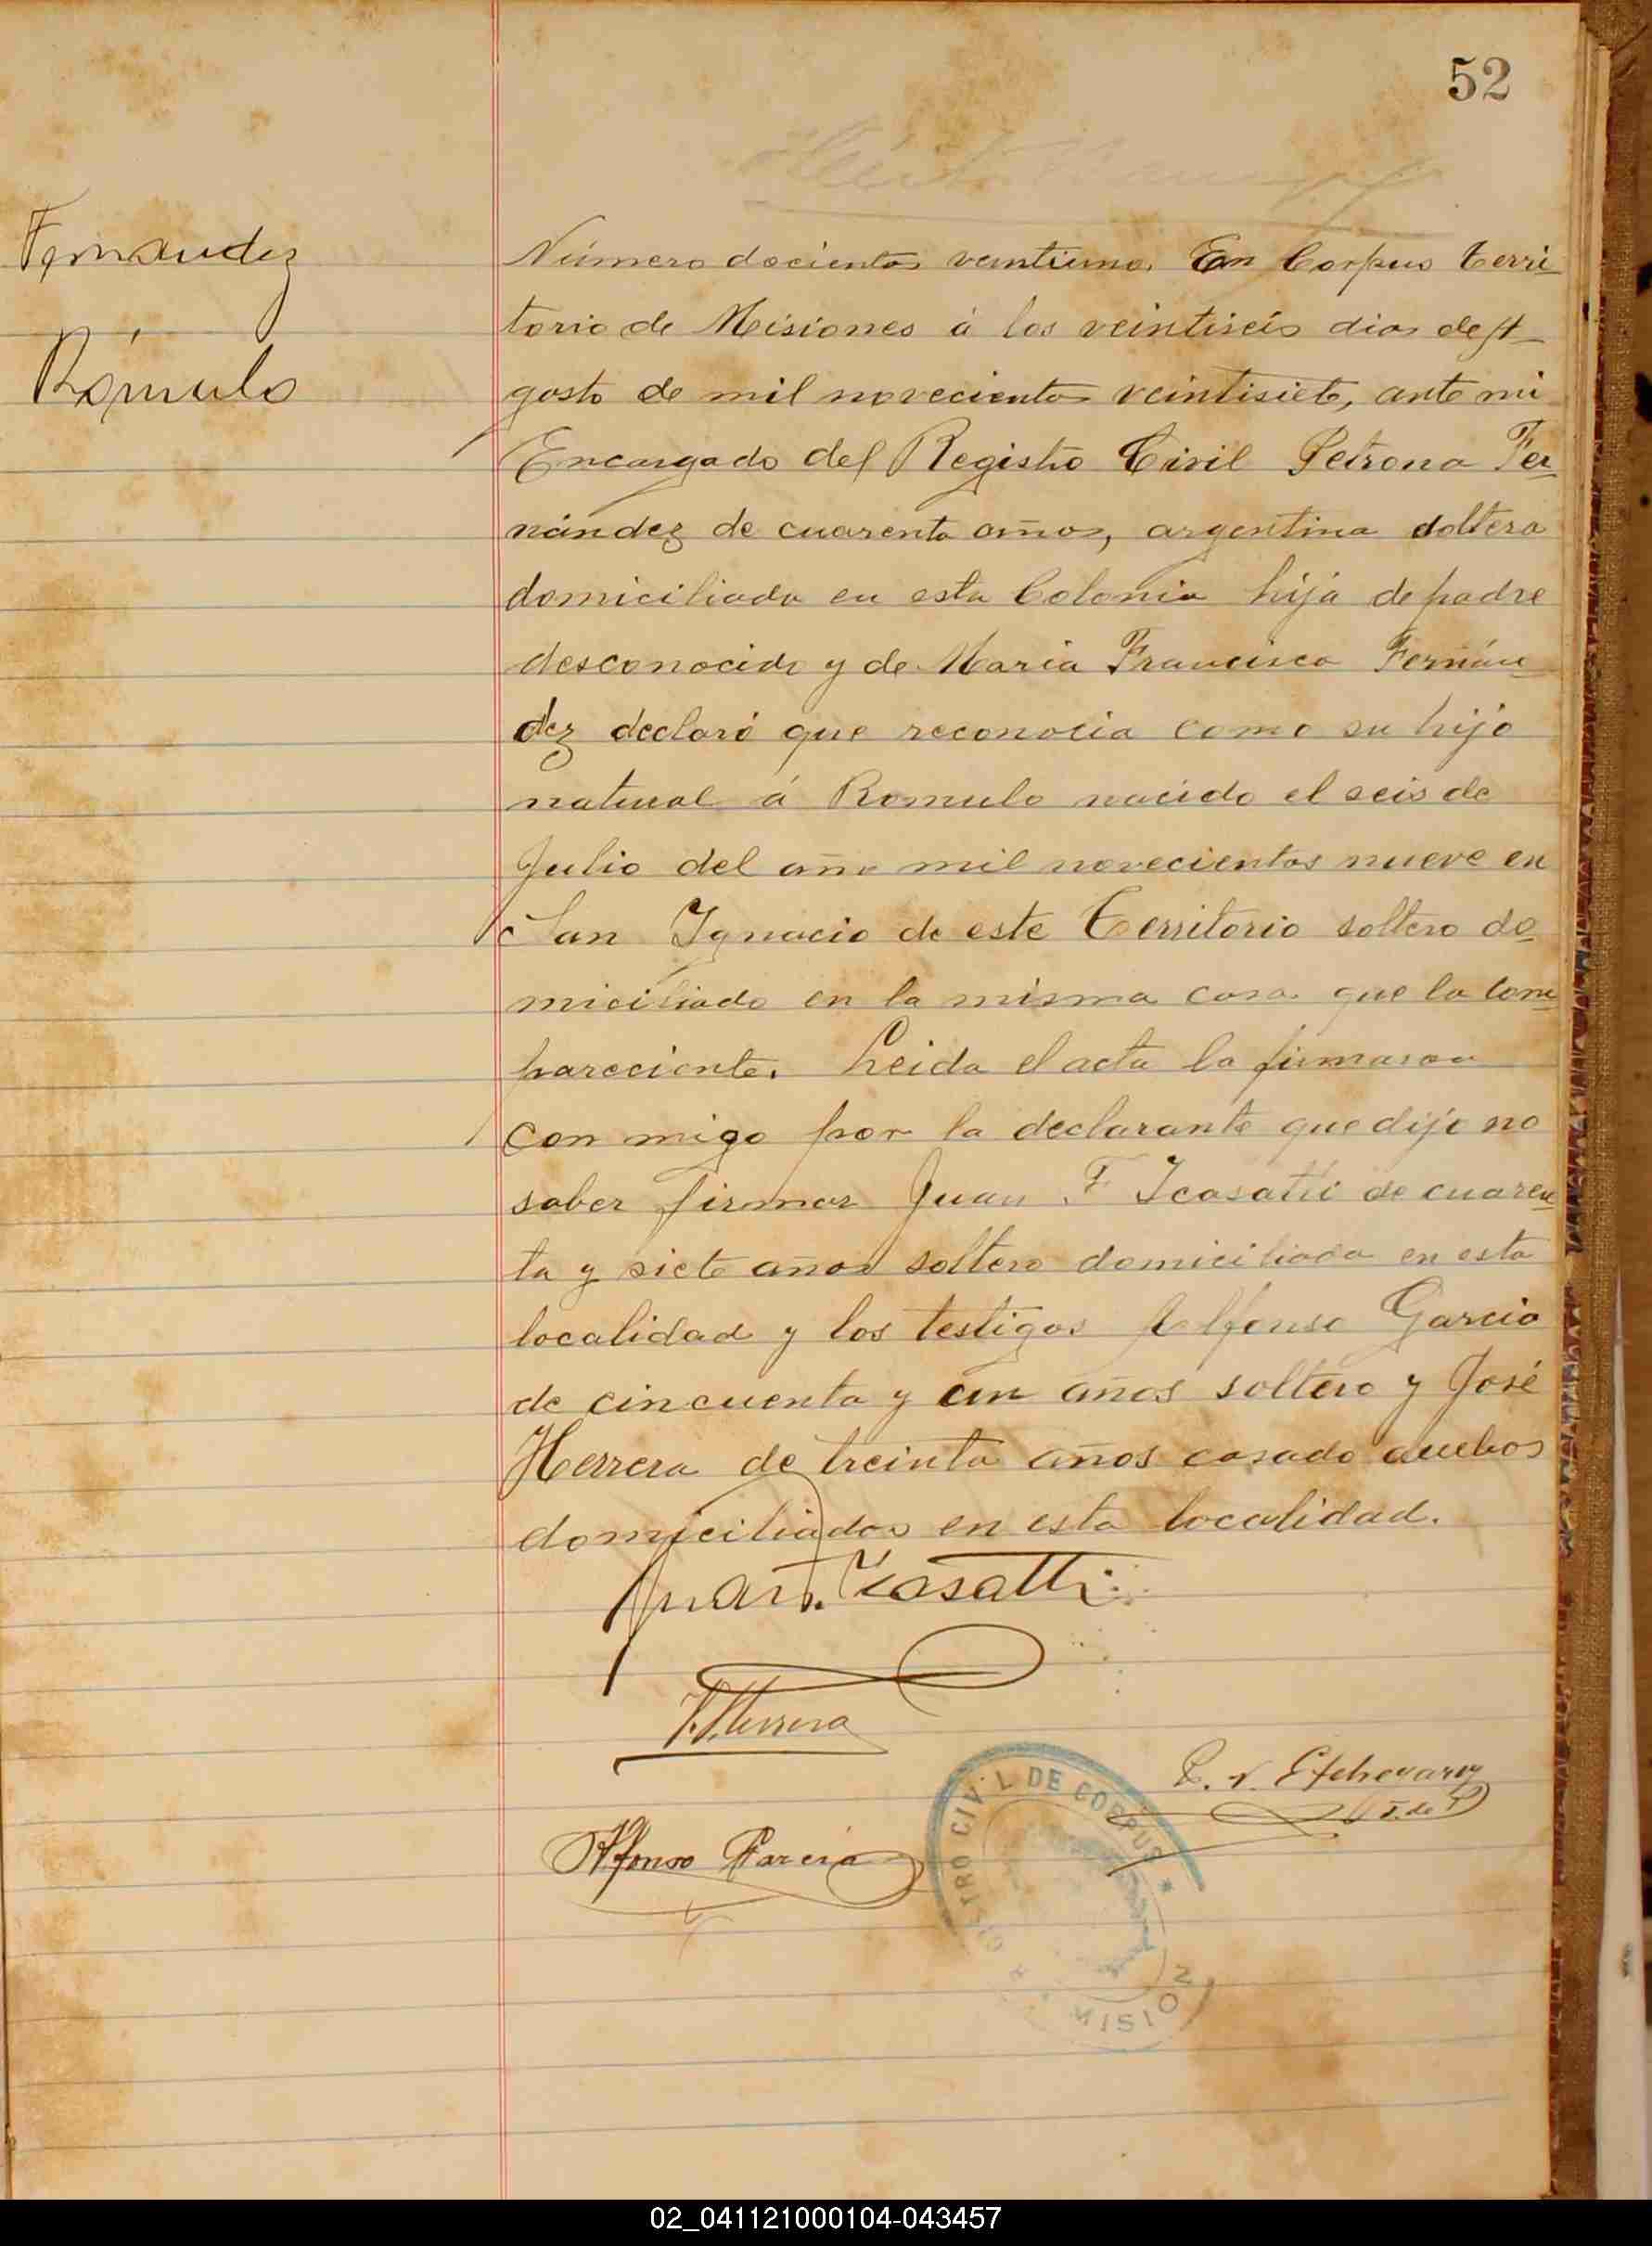 52
Fernandez
Rómulo
Número docientos veintiuno. En Corpus Terri
torio de Misiones á los veintiseis dias de A
gosto de mil novecientos veintisiete, ante mi
Encargado del Registro Civil Petrona Fer
nández de cuarenta años, argentina soltera
domiciliada en esta Colonia hija de padre
desconocido y de Maria Francisca Fernán
dez declaró que reconocia como su hijo
natural á Romulo nacido el seis de
Julio del año mil novecientos nueve en
San Ignacio de este Territorio soltero do
miciliado en la misma casa que la com
pareciente. Leida el acta la firmaron
con migo por la declarante que dijo no
saber firmar Juan F Icasatti de cuaren
ta y siete años soltero domiciliado en esta
localidad y los testigos Alfonso Garcia
de cincuenta y un años soltero y José
Herrera de treinta años casado ambos
domiciliados en esta localidad.
Juan F. Icasatti
J. Herrera
Etchevarry
J. de P
Alfonso Garcia
GISTRO CIVIL DE CORPUS *
* MISION
02_041121000104-043457